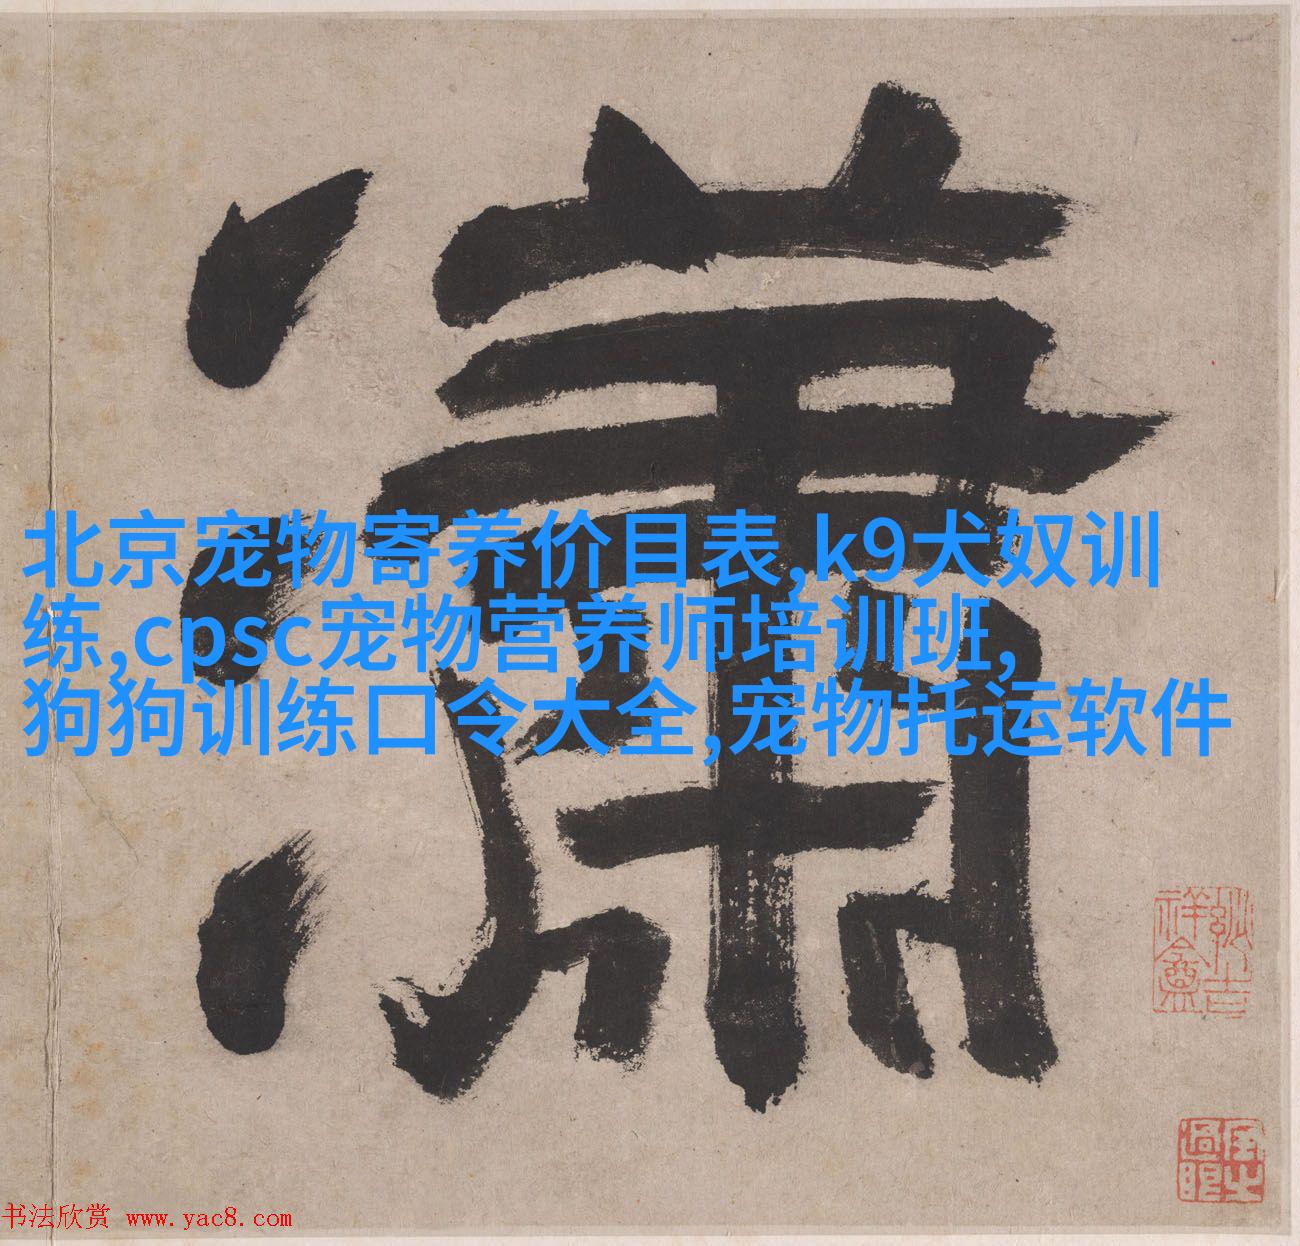 潇
北京宠物寄养价目表,k9犬奴训
练,cpsc宠物营养师培训班,
狗狗训练口令大全,宠物托运软件
书法欣赏 www.yac8.com